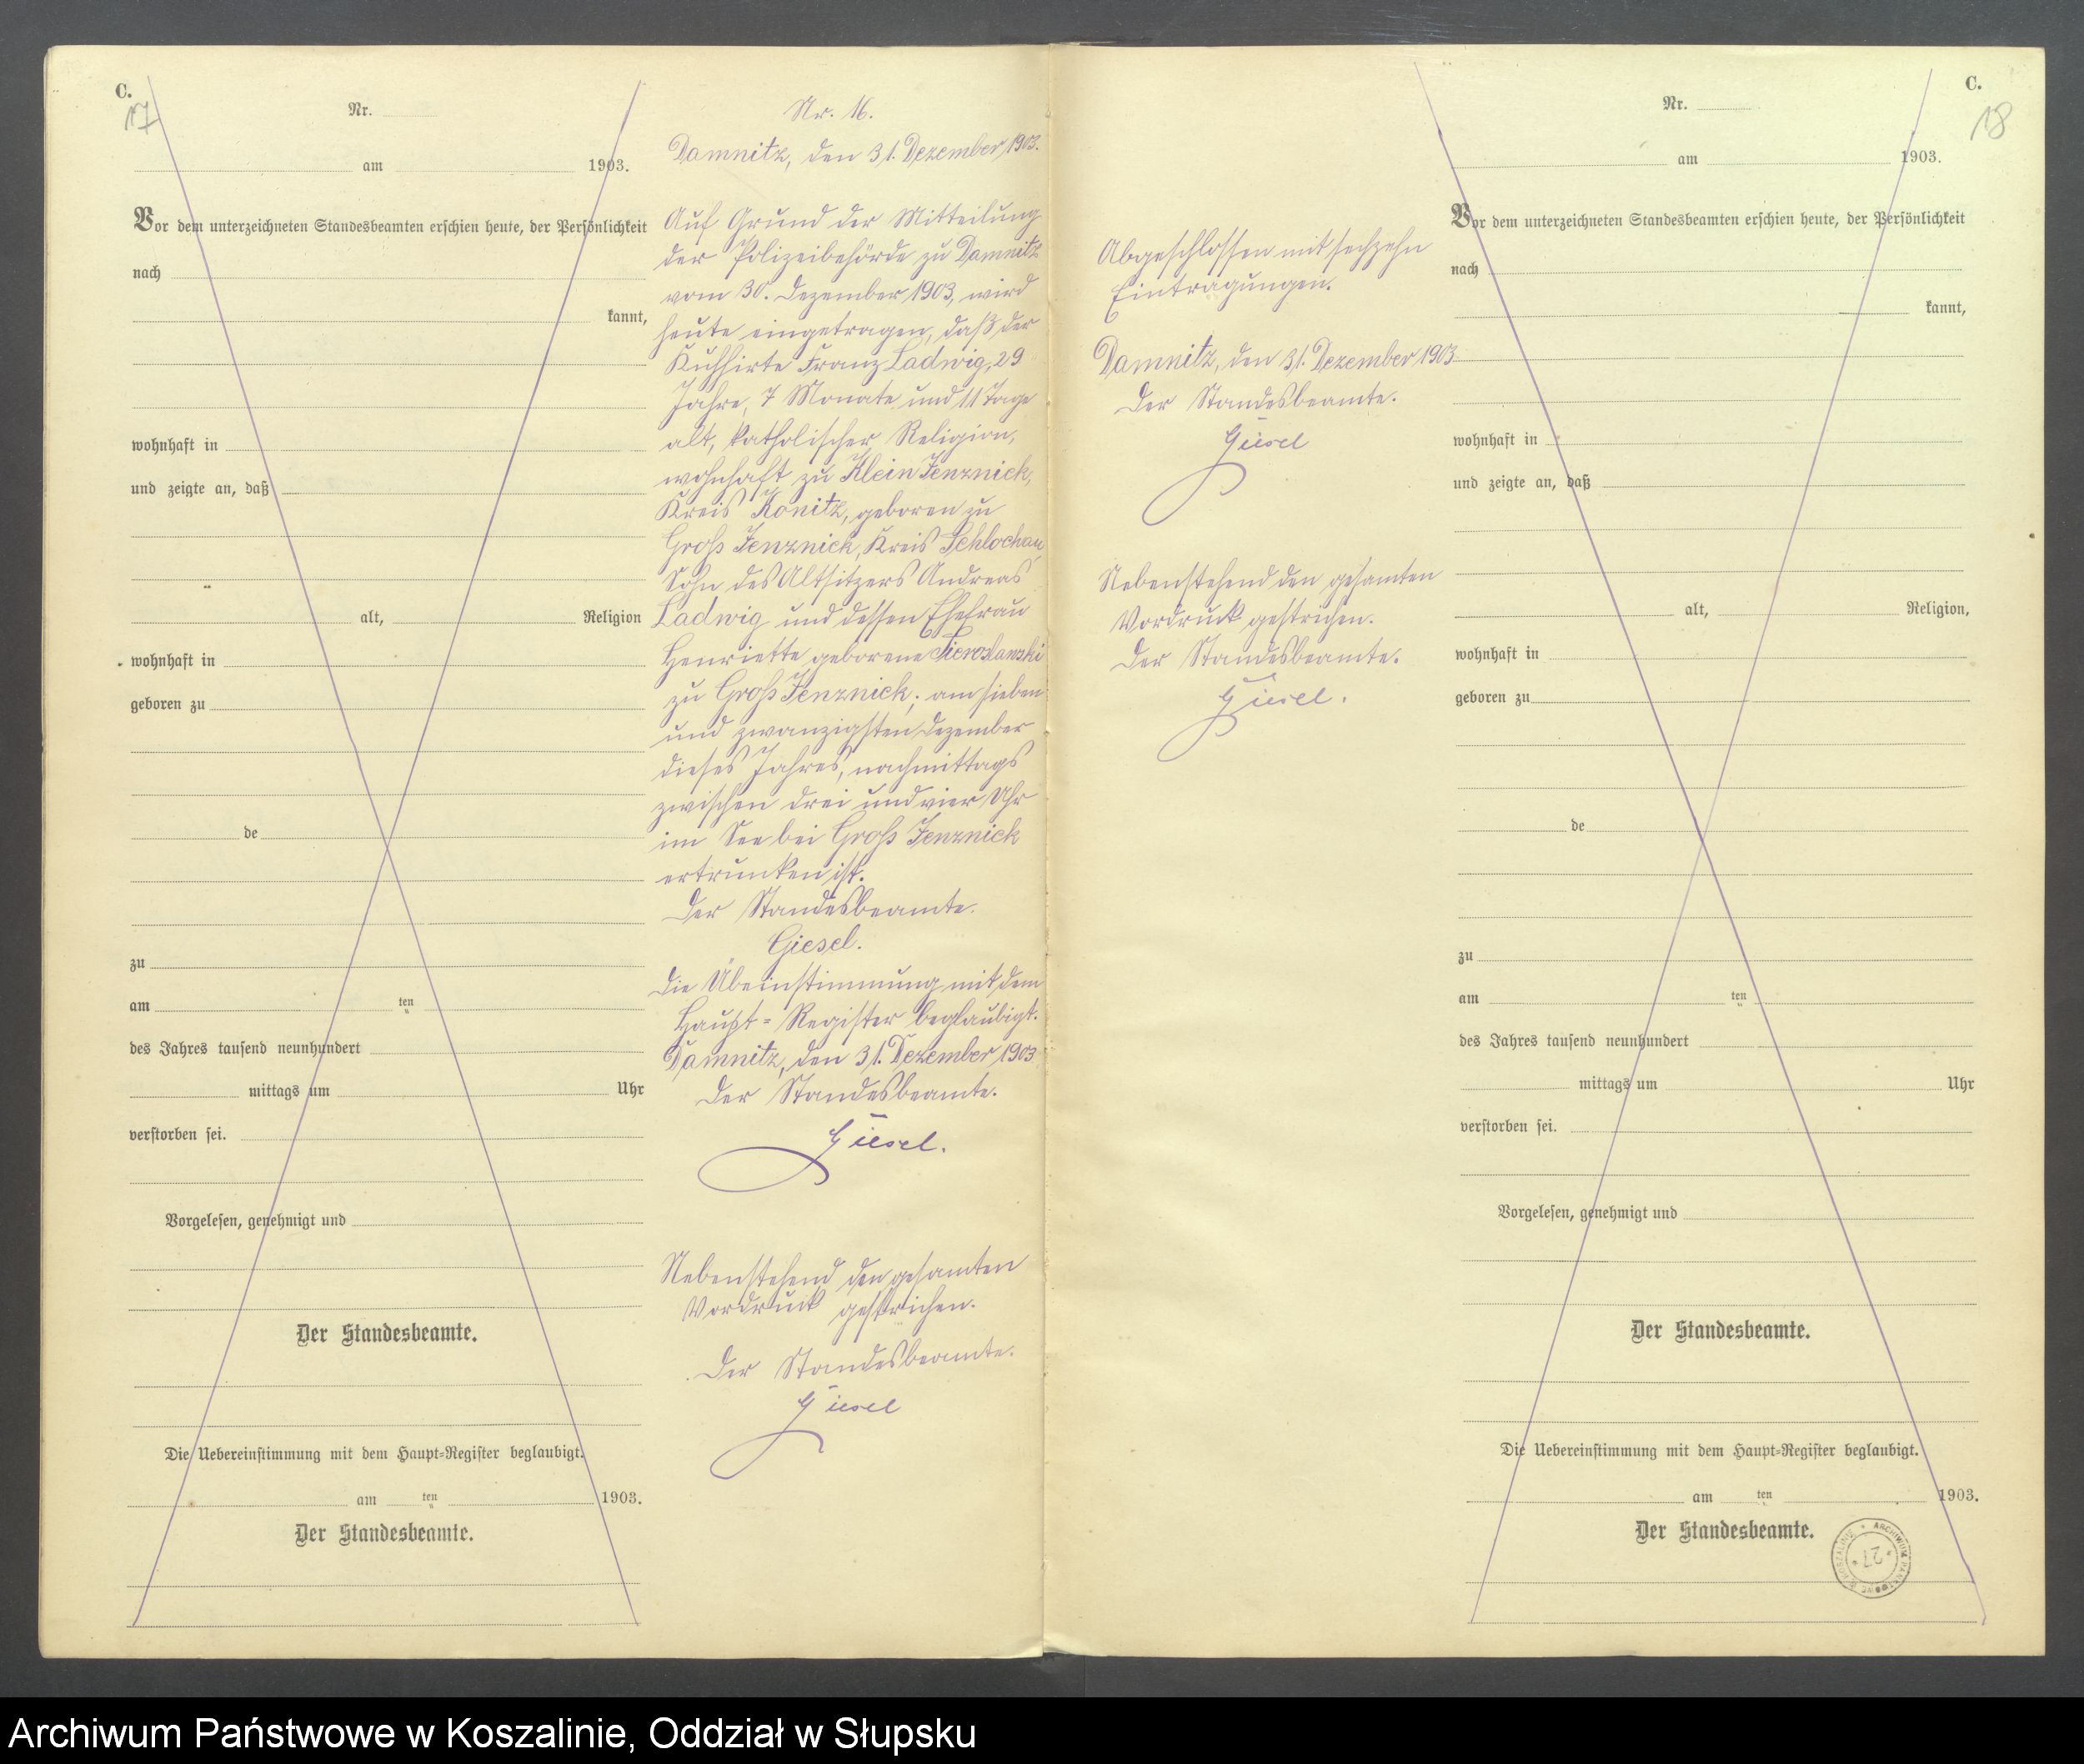 C.
17
Nr.
am 1903.
Vor dem unterzeichneten Standesbeamten erschien heute, der Persönlichkeit
nach
kannt,
wohnhaft in
und zeigte an, daß
alt, Religion
wohnhaft in
geboren zu
de
zu
am ten
des Jahres tausend neunhundert
mittags um Uhr
verstorben sei.
Vorgelesen, genehmigt und
Der Standesbeamte.
Die Uebereinstimmung mit dem Haupt-Register beglaubigt.
am ten 1903.
Der Standesbeamte.
Nr. 16.
Damnitz, den 31. Dezember 1903.
Auf Grund der Mitteilung
der Polizeibehörde zu Damnitz
vom 30. Dezember 1903, wird
heute eingetragen, daß der
Kuhhirte Franz Ladwig, 29
Jahre, 7 Monate und 11 Tage
alt, katholischer Religion,
wohnhaft zu Klein Jenznick,
Kreis Konitz, geboren zu
Groß Jenznick, Kreis Schlochau,
Sohn des Altsitzers Andreas
Ladwig und dessen Ehefrau
Henriette geborene
zu Groß Jenznick; am sieben
und zwanzigsten Dezember
dieses Jahres, nachmittags
zwischen drei und vier Uhr
im See bei Groß Jenznick
ertrunken ist.
Der Standesbeamte.
Giesel.
Die Übeinstimmung mit dem
Haupt-Register beglaubigt.
Damnitz, den 31. Dezember 1903.
Der Standesbeamte.
Giesel.
Nebenstehend den gesamten
Vordruck gestrichen.
Der Standesbeamte.
Giesel
Abgeschlossen mit sechzehn
Eintragungen.
Damnitz, den 31. Dezember 1903.
Der Standesbeamte.
Giesel
Nebenstehend den gesamten
Vordruck gestrichen.
Der Standesbeamte.
Giesel.
C.
18
Nr.
am 1903.
Vor dem unterzeichneten Standesbeamten erschien heute, der Persönlichkeit
nach
kannt,
wohnhaft in
und zeigte an, daß
alt, Religion,
wohnhaft in
geboren zu
de
zu
am ten
des Jahres tausend neunhundert
mittags um Uhr
verstorben sei.
Vorgelesen, genehmigt und
Der Standesbeamte.
Die Uebereinstimmung mit dem Haupt-Register beglaubigt.
am ten 1903.
Der Standesbeamte.
27
Archiwum Państwowe w Koszalinie, Oddział w Słupsku